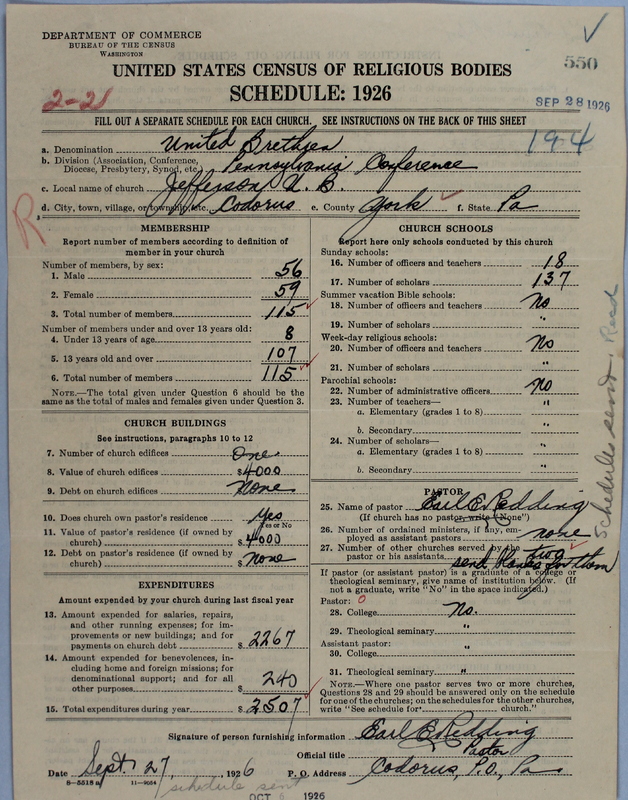 DEPARTMENT OF COMMERCE
BUREAU OF THE CENSUS
WASHINGTON
550
UNITED STATES CENSUS OF RELIGIOUS BODIES
SCHEDULE: 1926
2-21
SEP 28 1926
FILL OUT A SEPARATE SCHEDULE FOR EACH CHURCH. SEE INSTRUCTIONS ON THE BACK OF THIS SHEET
19-4
a. Denomination United Brethren
b. Division (Association, Conference, Diocese, Presbytery, Synod, etc.) Pennsylvania Conference
c. Local name of church Jefferson U. B.
d. City, town, village, or township, etc. Codorus e. County York f. State Pa
R
MEMBERSHIP
Report number of members according to definition of member in your church
Number of members, by sex:
1. Male 56
2. Female 59
3. Total number of members 115
Number of members under and over 13 years old:
4. Under 13 years of age 8
5. 13 years old and over 107
6. Total number of members 115
NOTE.—The total given under Question 6 should be the same as the total of males and females given under Question 3.
CHURCH BUILDINGS
See instructions, paragraphs 10 to 12
7. Number of church edifices One
8. Value of church edifices $4000
9. Debt on church edifices None
10. Does church own pastor's residence Yes
Yes or No
11. Value of pastor's residence (if owned by church) $4000
12. Debt on pastor's residence (if owned by church) $ None
EXPENDITURES
Amount expended by your church during last fiscal year
13. Amount expended for salaries, repairs, and other running expenses; for improvements or new buildings; and for payments on church debt $ 2267
14. Amount expended for benevolences, including home and foreign missions; for denominational support; and for all other purposes $ 240
15. Total expenditures during year $2507
CHURCH SCHOOLS
Report here only schools conducted by this church
Sunday schools:
16. Number of officers and teachers 18
17. Number of scholars 137
Summer vacation Bible schools:
18. Number of officers and teachers No
19. Number of scholars "
Week-day religious schools:
20. Number of officers and teachers No
21. Number of scholars "
Parochial schools:
22. Number of administrative officers No
23. Number of teachers—
a. Elementary (grades 1 to 8) "
b. Secondary "
24. Number of scholars—
a. Elementary (grades 1 to 8) "
b. Secondary "
PASTOR
25. Name of pastor Earl E. Redding
(If church has no pastor, write "None")
26. Number of ordained ministers, if any, employed as assistant pastors none
27. Number of other churches served by the pastor or his assistants two
send blanks for them
If pastor (or assistant pastor) is a graduate of a college or theological seminary, give name of institution below. (If not a graduate, write "No" in the space indicated.)
Pastor:
28. College No.
29. Theological seminary "
Assistant pastor:
30. College
31. Theological seminary "
NOTE.—Where one pastor serves two or more churches, Questions 28 and 29 should be answered only on the schedule for one of the churches; on the schedules for the other churches, write "See schedule for church."
Schedules send.
Signature of person furnishing information Earl E. Redding
Official title Pastor
Date Sept. 27, 1926 P. O. Address Codorus, P.O., Pa
8-5518a 11-9664
schedule sent
OCT 1926